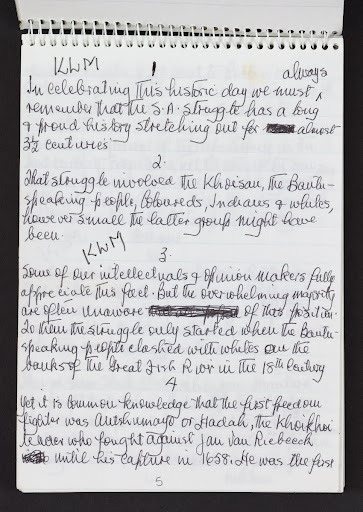 KWM 1
always
In celebrating this historic day we must ^
remember that the S.A. struggle has a long
& proud history stretching out for almost
3½ centuries
2.
That struggle involved the Khoisan, the Bantu-
speaking people, Coloureds, Indians & whites,
however small the latter group might have
been.
KWM
3.
Some of our intellectuals & opinion makers fully
appreciate this fact. But the overwhelming majority
are often unaware of this position.
To them the struggle only started when the Bantu-
speaking people clashed with whites on the
banks of the Great Fish River in the 18th century
4
Yet it is common knowledge that the first freedom
fighter was Autshumayo or Hadah, the Khoikhoi
leader who fought against Jan Van Riebeeck
until his capture in 1658. He was the first
5